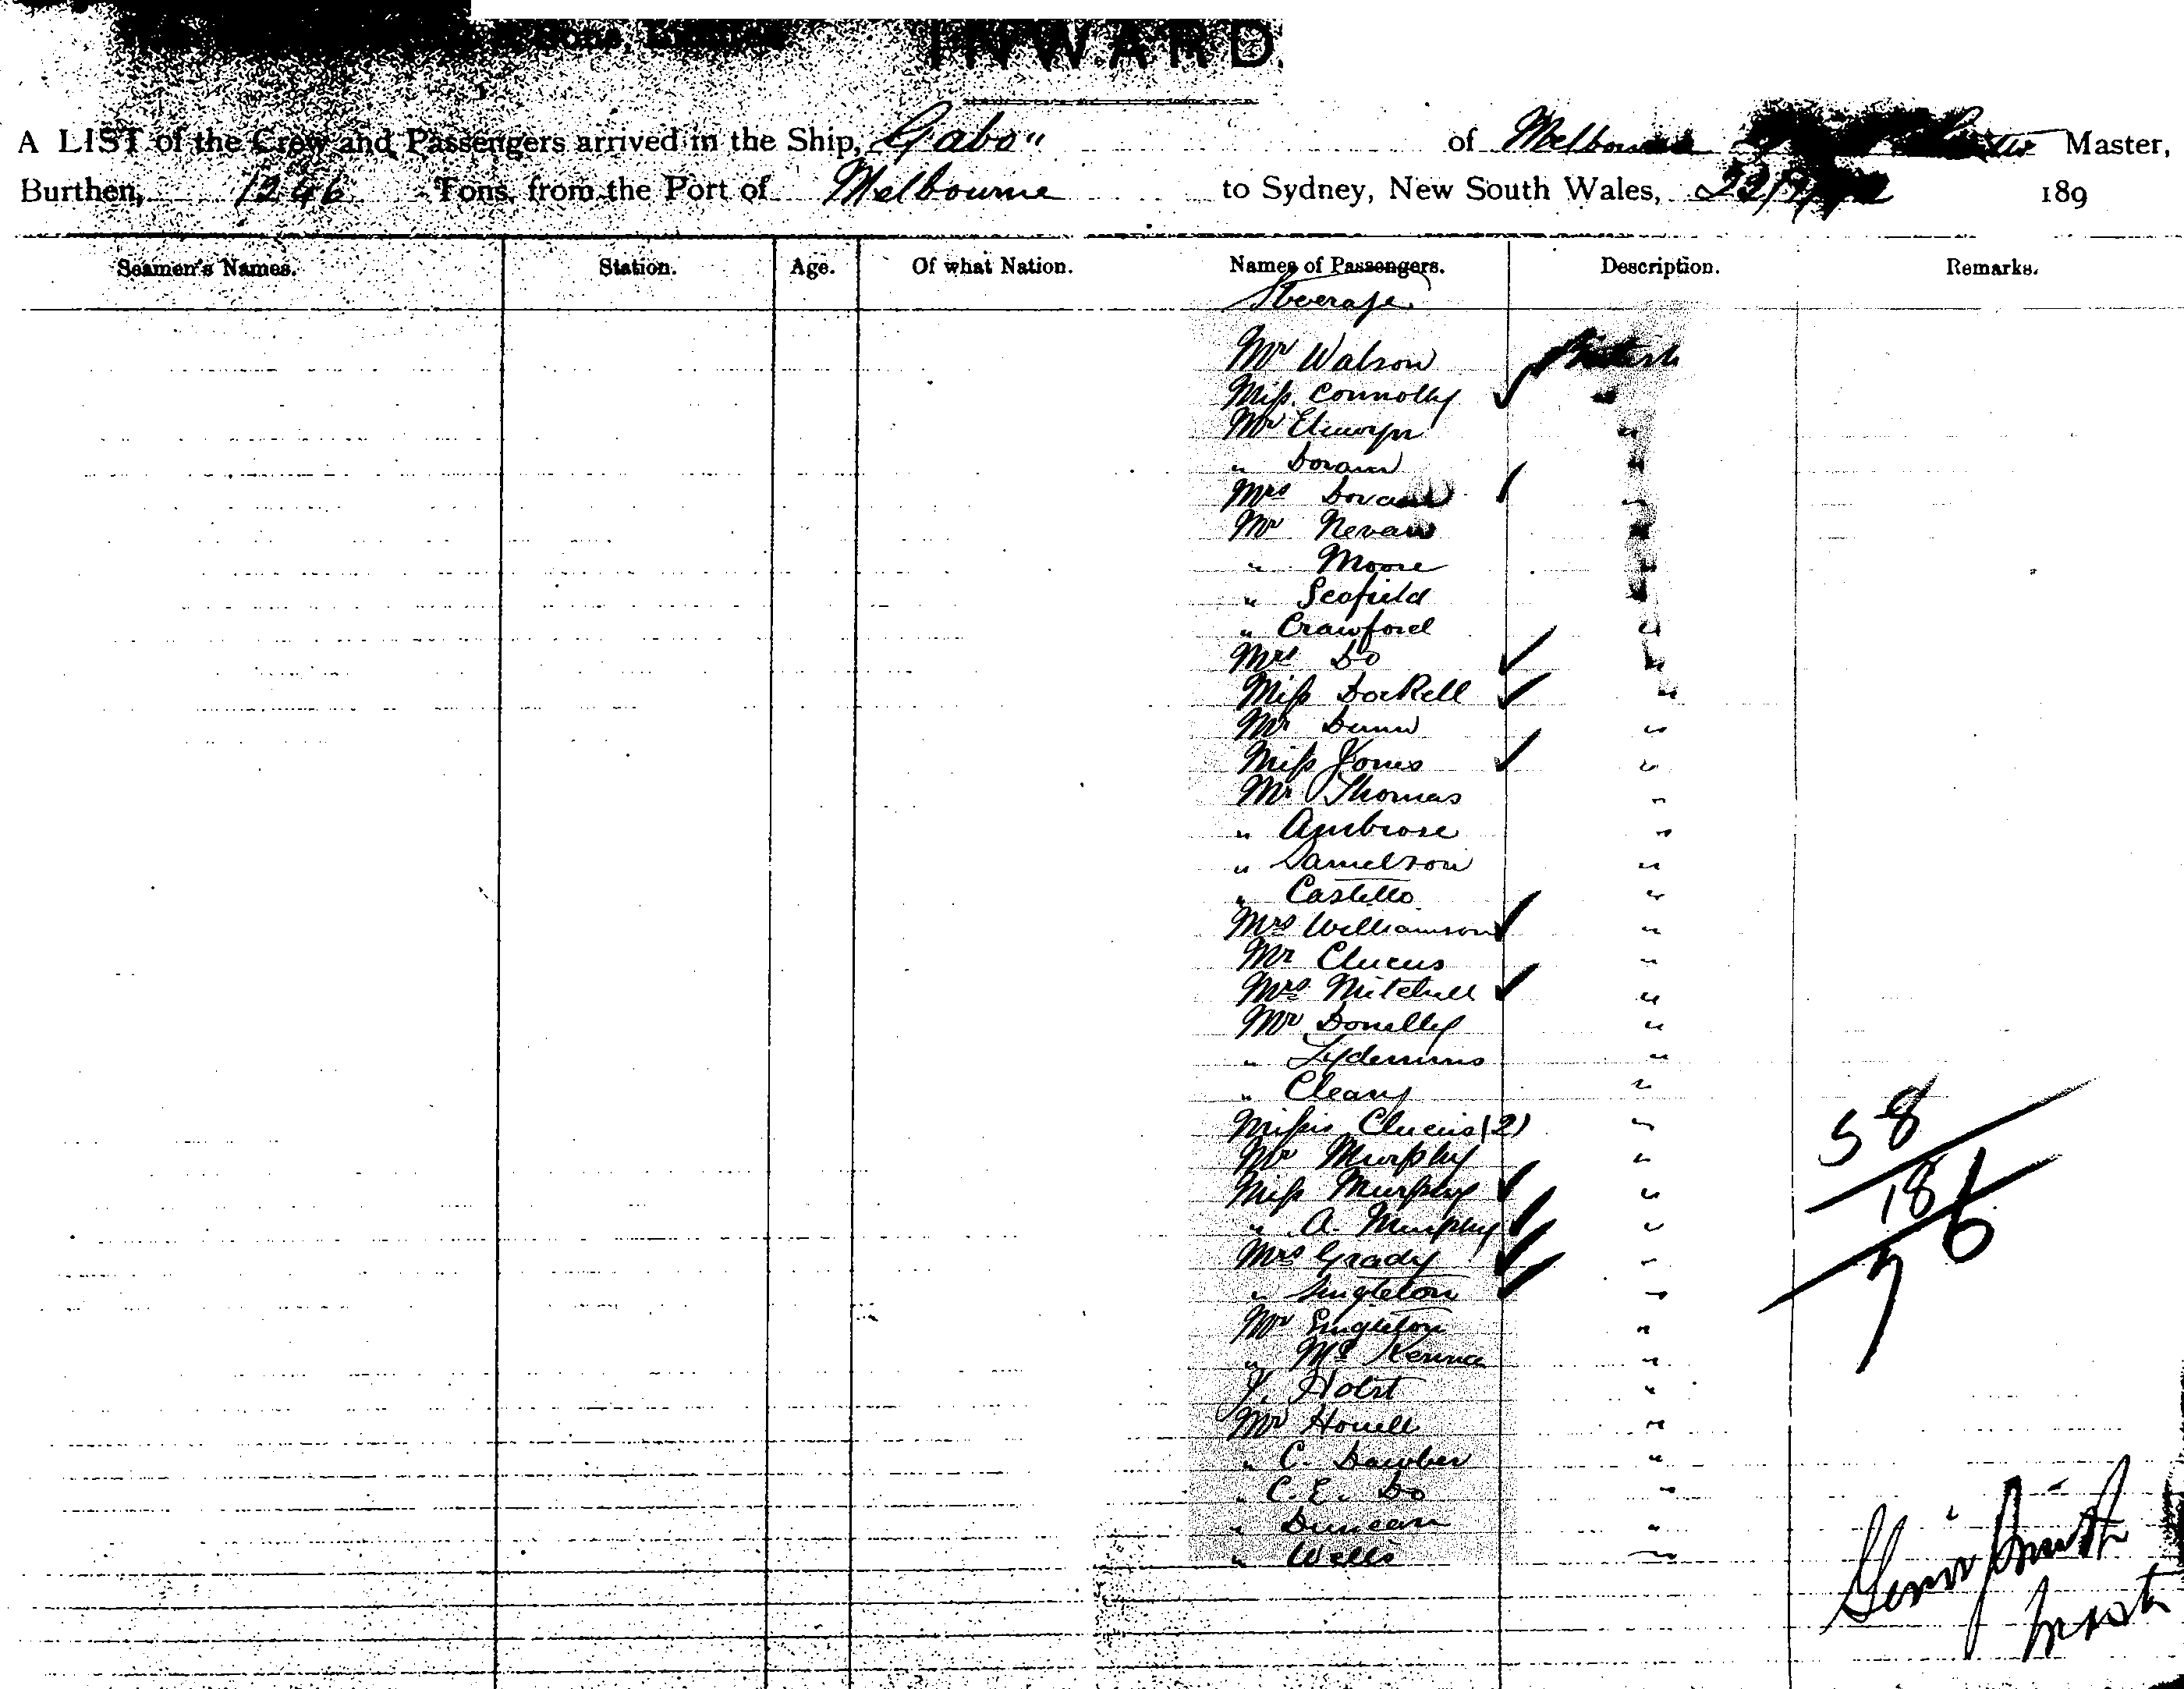 Sons,
INWARD.
A LIST of the Crew and Passengers arrived in the Ship, Gabo" of Melbourne Master,
Burthen, 1246 Tons, from the Port of Melbourne to Sydney, New South Wales, 189
Seamen's Names. Station. Age. Of what Nation. Names of Passengers. Description. Remarks.
Steerage.
Mr Watson British
Miss. Connolly ✓ "
Mr "
" Doran "
Mrs Doran ✓ "
Mr Nevan "
" Moore "
" Scofield "
" Crawford "
Mrs Do ✓ "
Miss Dockell ✓ "
Mr Dunn "
Miss Jones ✓ "
Mr Thomas "
" Ambrose "
" Danielson "
" Castello "
Mrs Williamson ✓ "
Mr Clucus "
Mrs Mitchell ✓ "
Mr Donelly "
" "
" Cleary "
Misses Clucus (2) "
Mr Murphy "
Miss Murphy ✓ "
" A. Murphy ✓ "
Mrs Grady ✓ "
" Singleton ✓ "
Mr Singleton "
" McKenna "
J. Holst "
Mr Howell "
" C. Dawber "
" C. E. Do "
" Duncan "
" Wells "
58
18
76